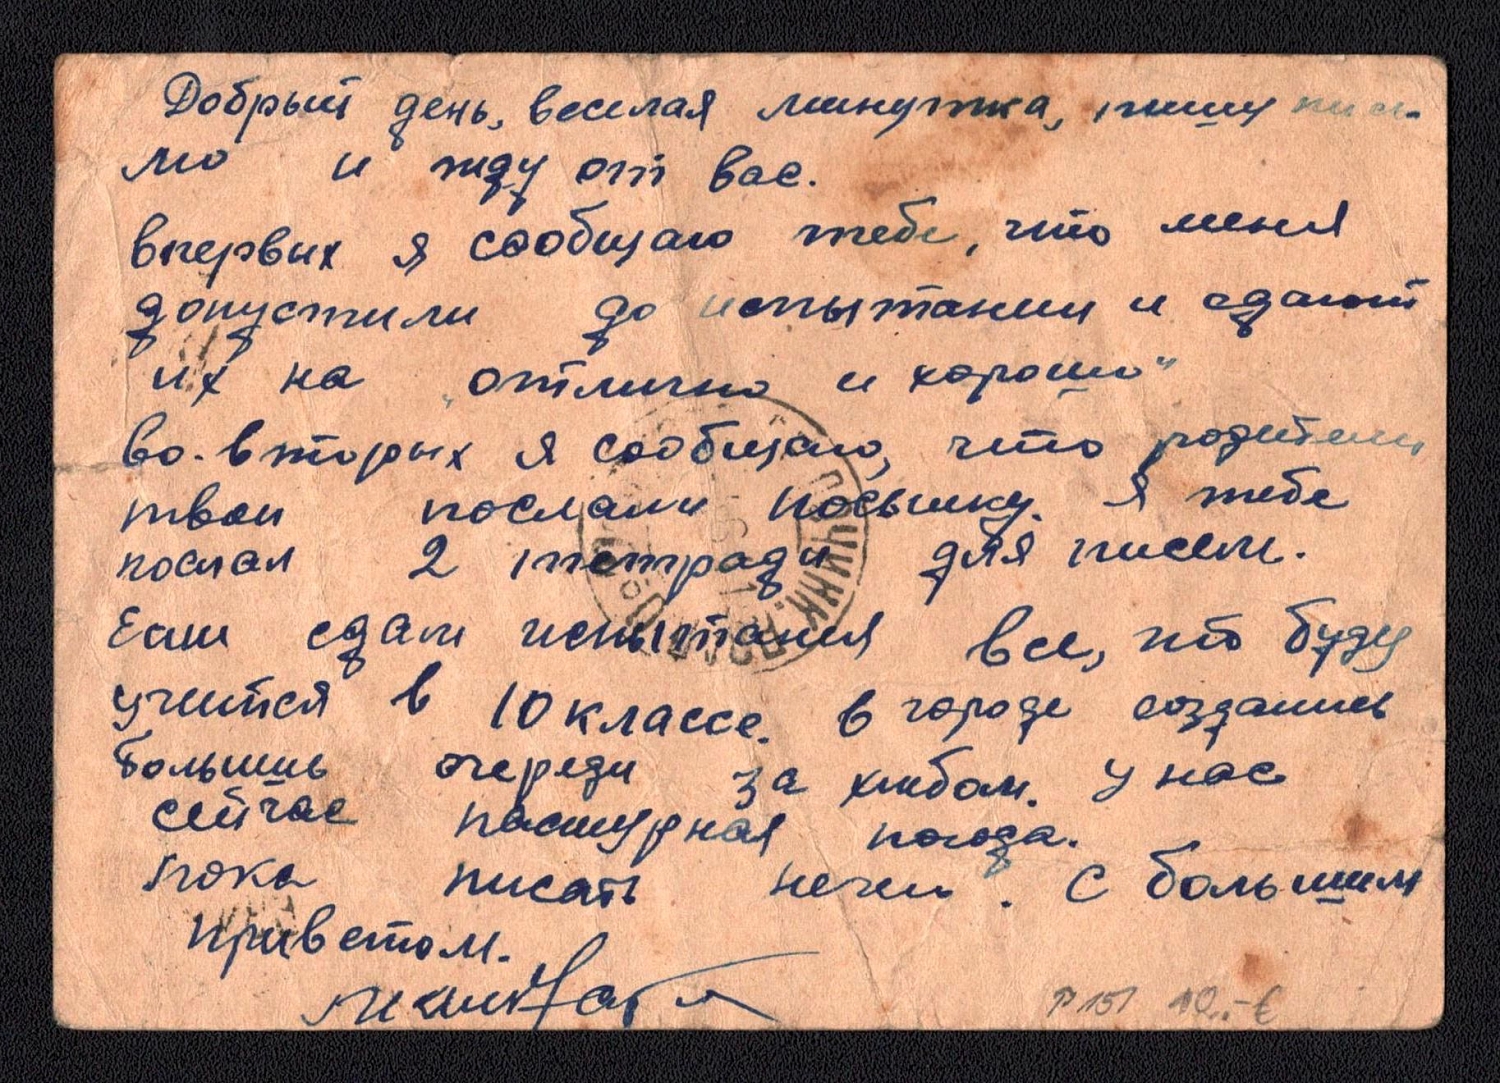 Добрый день, веселая минутка, пишу пись-
мо и жду от вас.
впервых я сообщаю тебе, что меня
допустили до испытании и сдают
их на „отлично и хорошо"
во-вторых я сообщаю, что родители
твои послали посылку. Я тебе
послал 2 тетради для писем.
Если сдам испытания все, то буду
учится в 10 классе. в городе создались
большие очереди за хлебом. у нас
сейчас пасмурная погода.
пока писать нечего. С большим
приветом.
P 151 40.-€